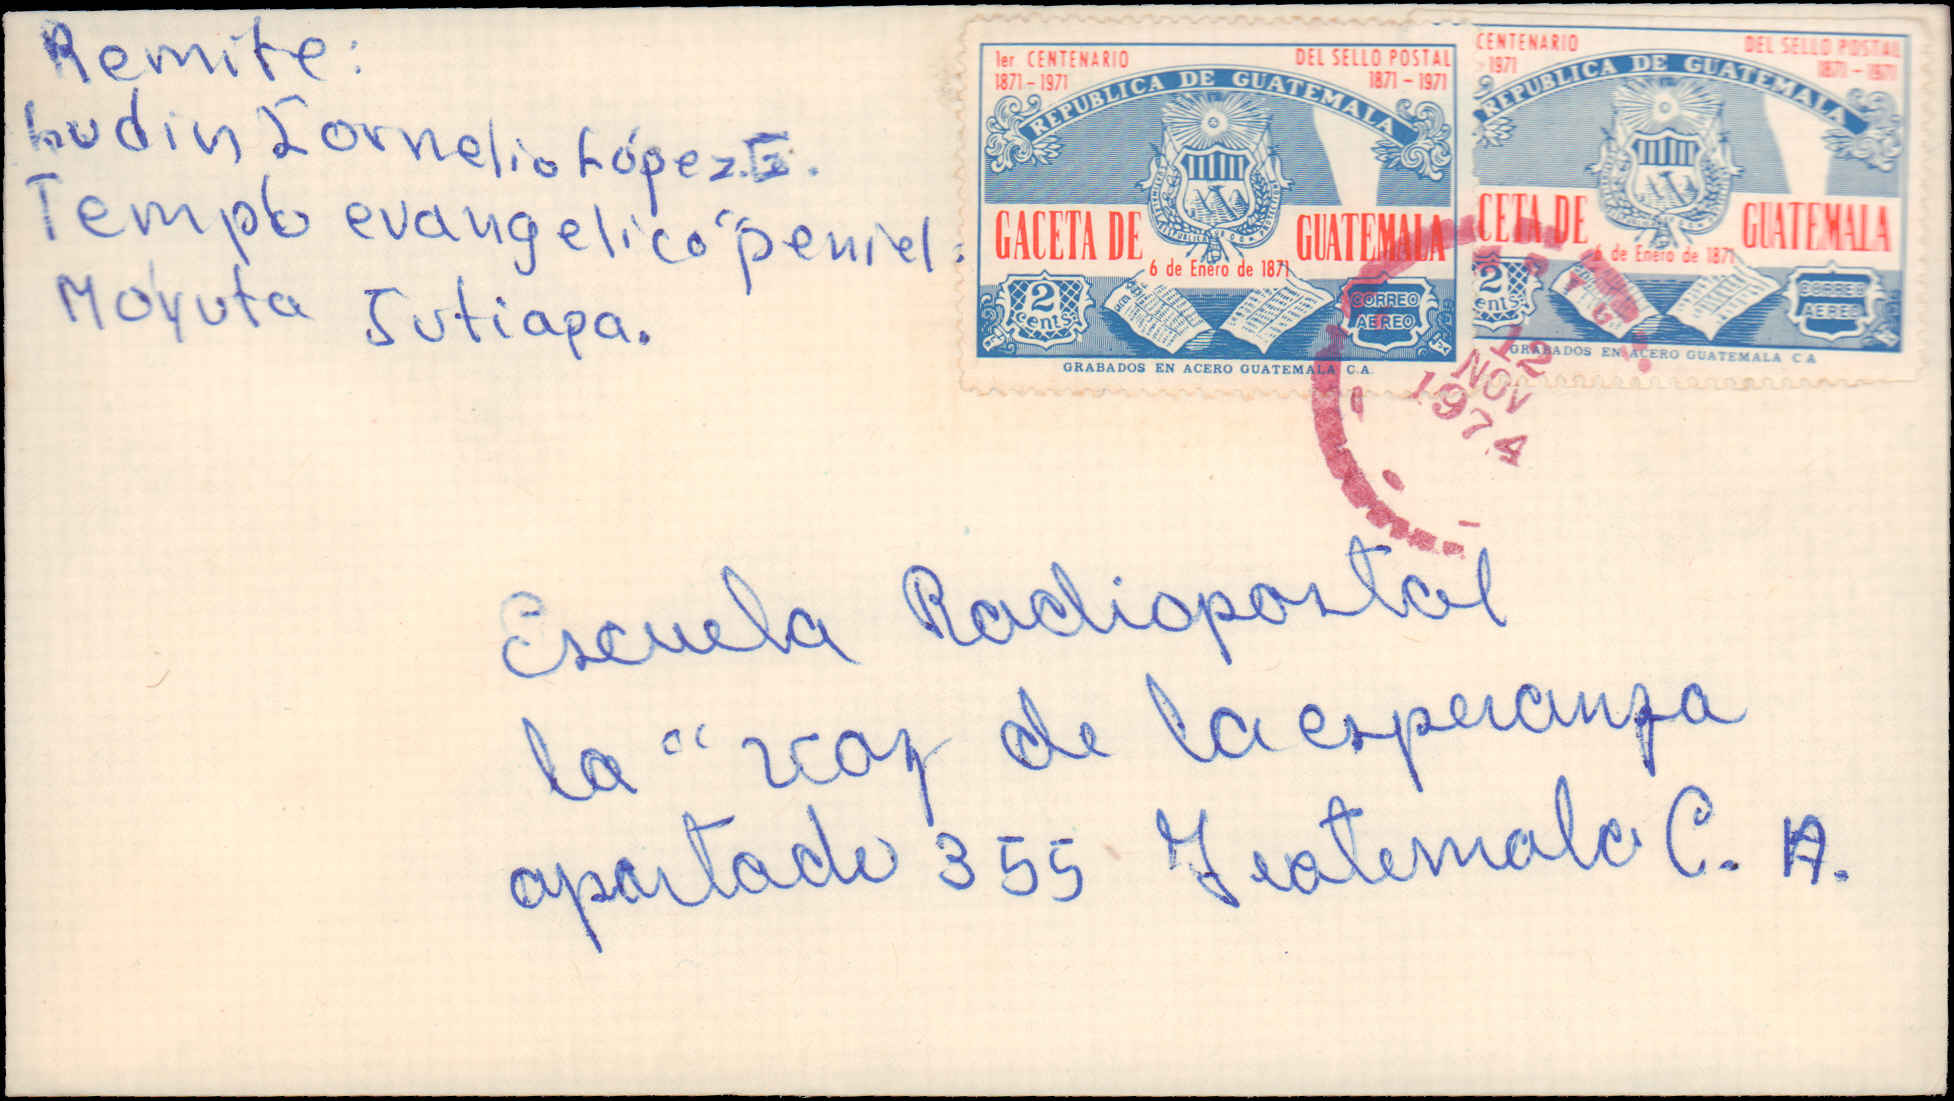 Remite:
Ludin Cornelio López
Templo evangelico "peniel:
Moyuta Jutiapa.
1er CENTENARIO
1871-1971
DEL SELLO POSTAL
1871-1971
REPUBLICA DE GUATEMALA
GACETA DE GUATEMALA
6 de Enero de 1871
2 cents
CORREO AEREO
GRABADOS EN ACERO GUATEMALA C.A.
CENTENARIO
1971
DEL SELLO POSTAL
1871-1971
REPUBLICA DE GUATEMALA
CETA DE GUATEMALA
6 de Enero de 1871
2 ents
CORREO AEREO
GRABADOS EN ACERO GUATEMALA C A
12
NOV
1974
Escuela Radiopostal
la " voz de la esperanza
apartado 355 Guatemala C. A.